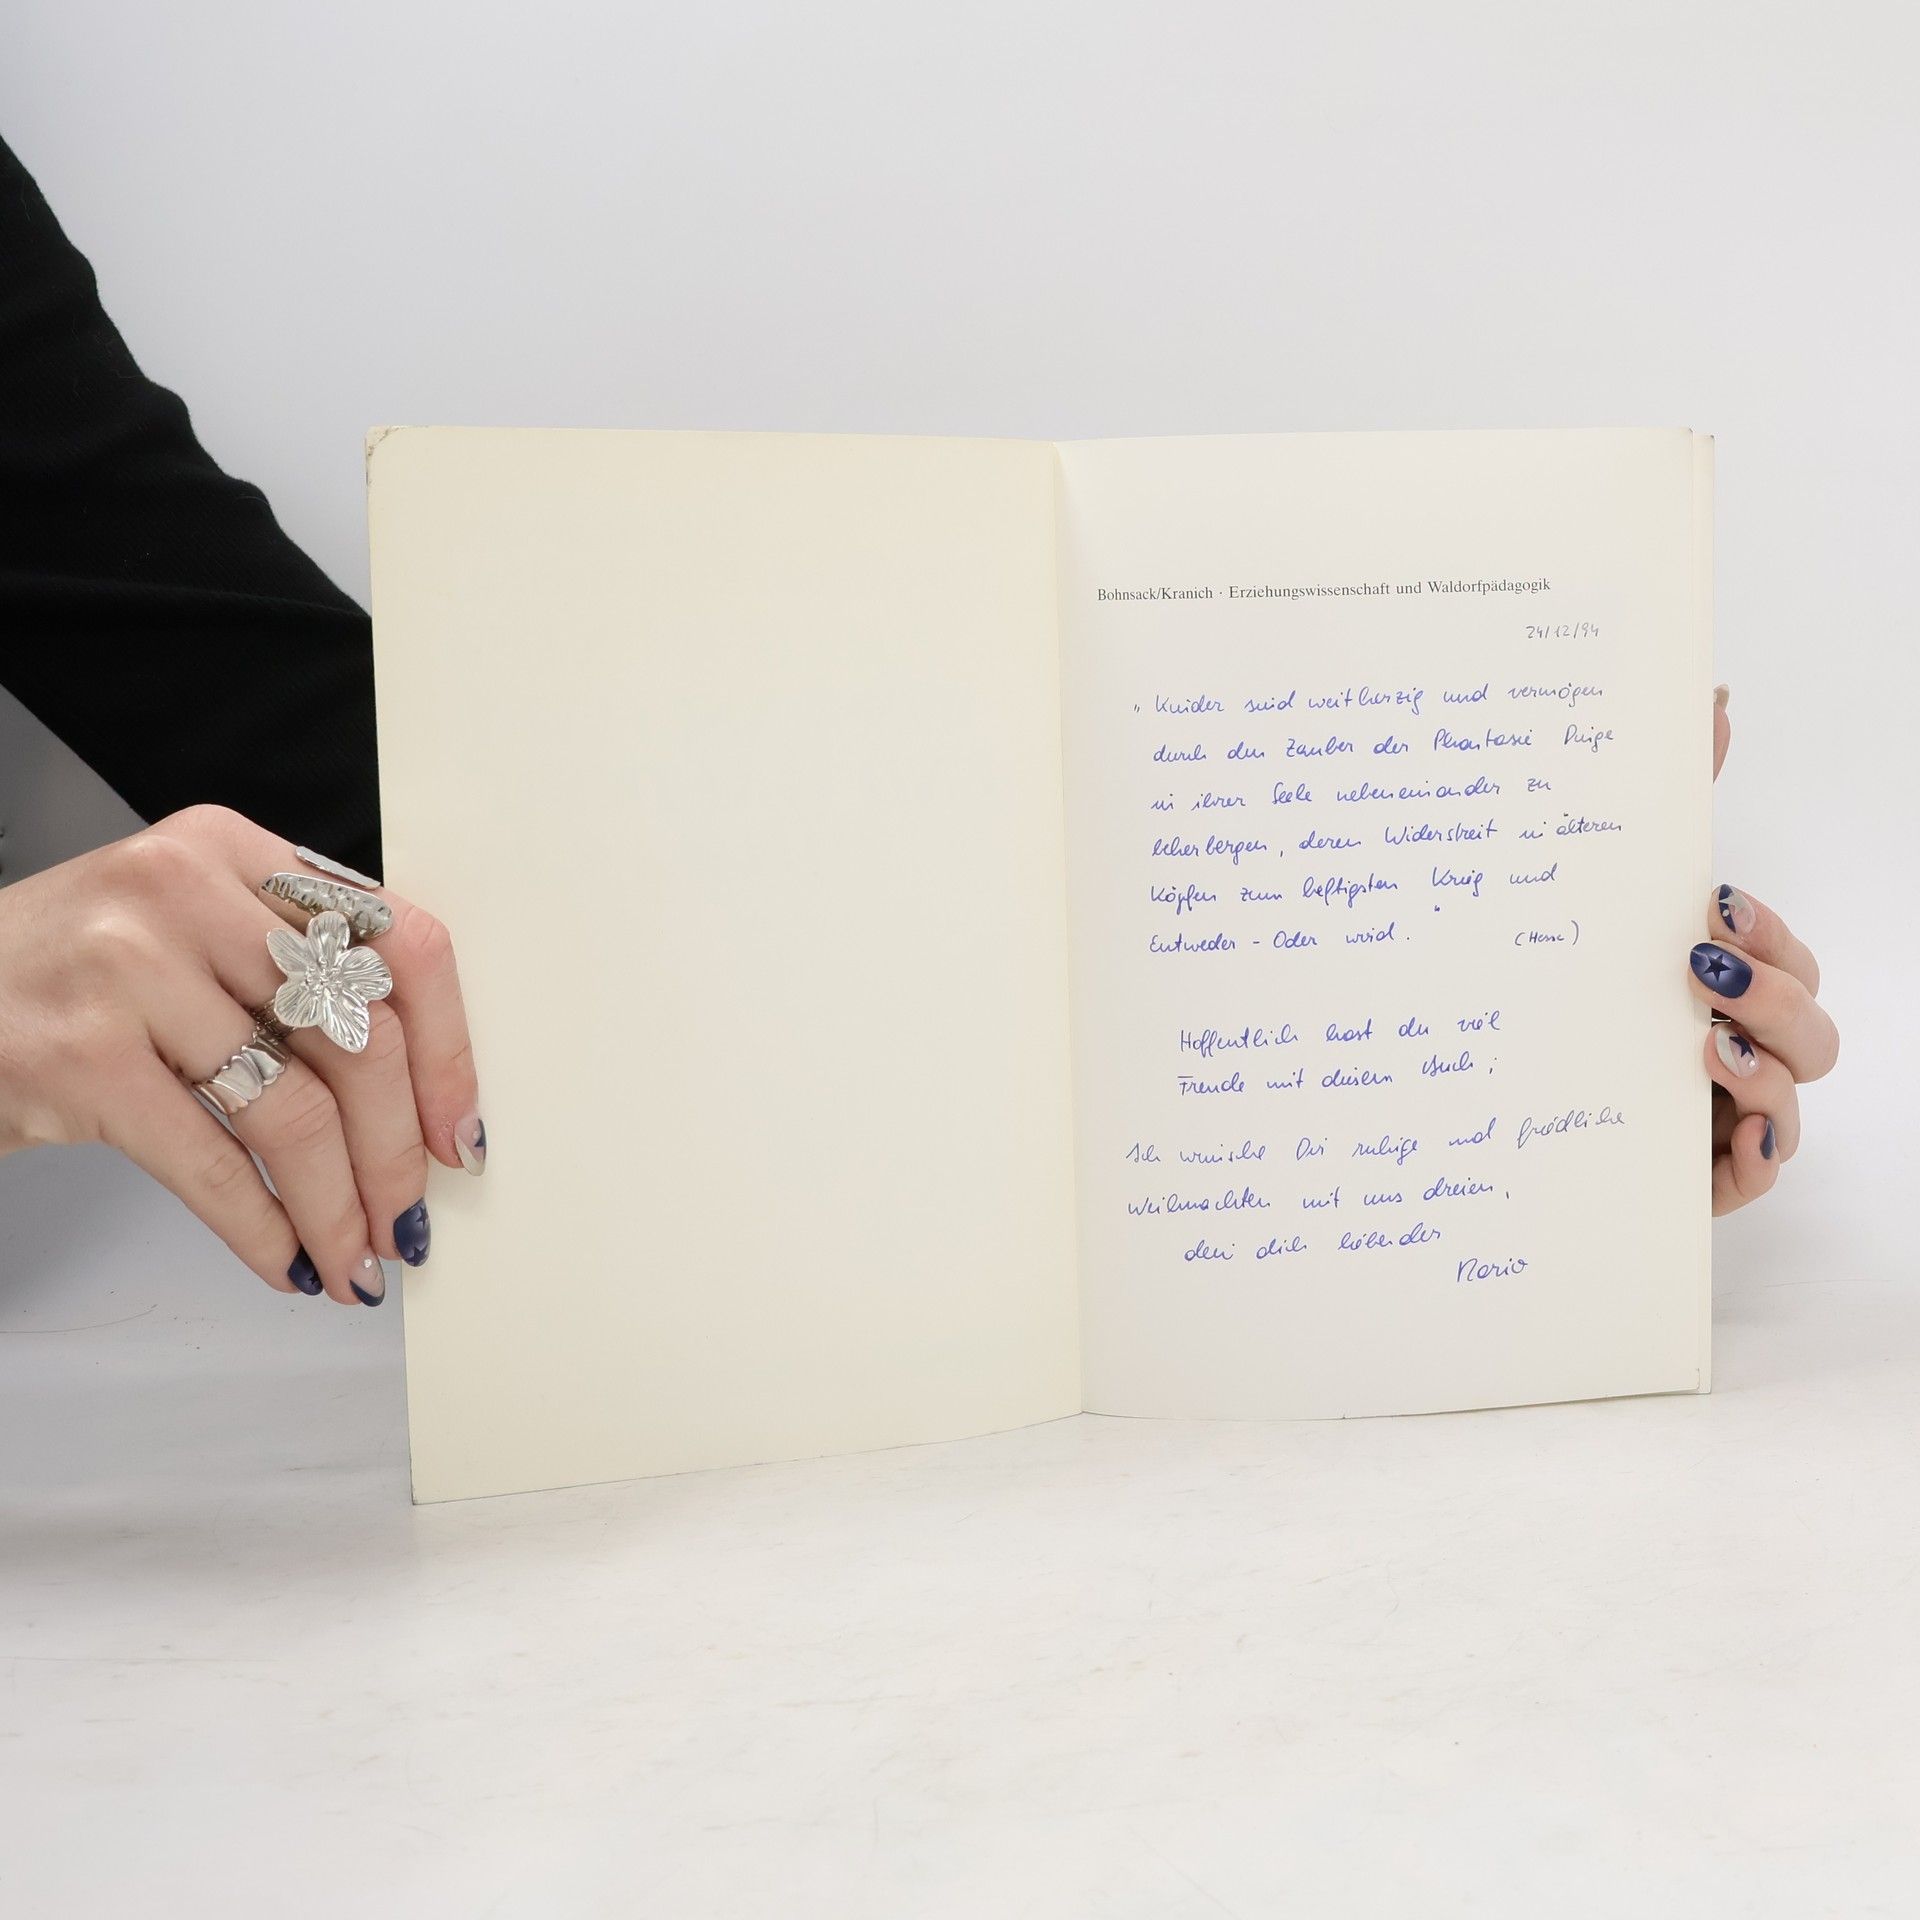 Bohnsack/Kranich · Erziehungswissenschaft und Waldorfpädagogik
24/12/94
„Kinder sind weitherzig und vermögen
durch den Zauber der Phantasie Dinge
in ihrer Seele nebeneinander zu
beherbergen, deren Widerstreit in älteren
Köpfen zum heftigsten Krieg und
Entweder - Oder wird." (Hesse)
Hoffentlich hast du viel
Freude mit diesem Buch;
Ich wünsche Dir ruhige und friedliche
Weihnachten mit uns dreien,
dein dich liebender
Mario